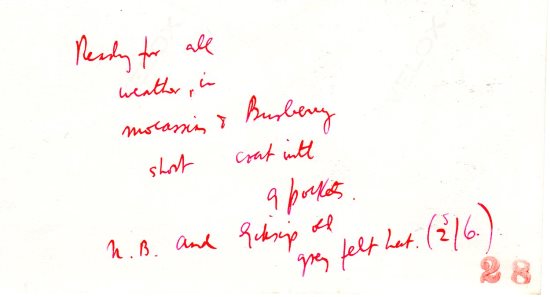 Ready for all
weather, in
mocassins & Burberry
short coat with
9 pockets.
N.B. and old
grey felt hat. (2/6.)
28